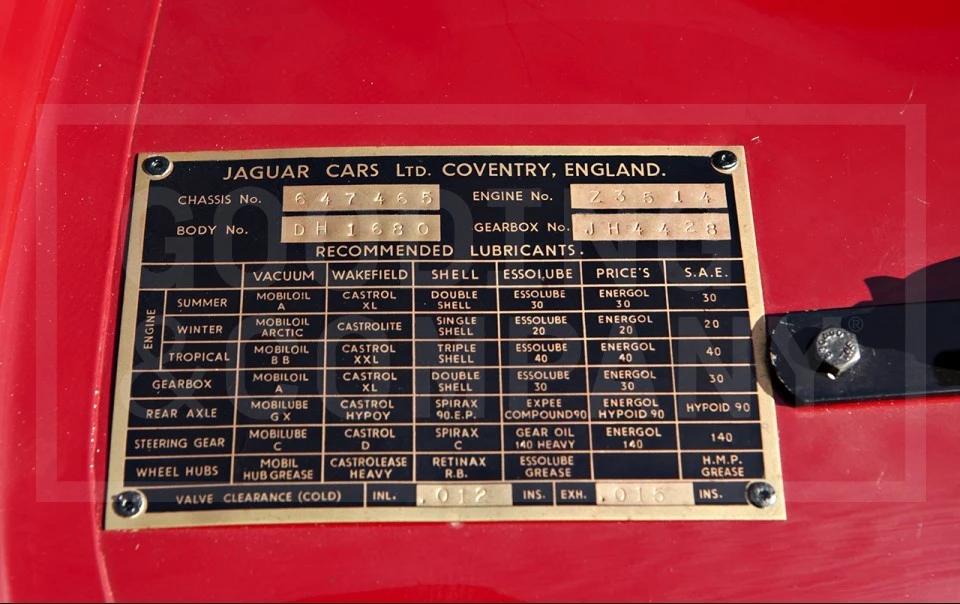 JAGUAR CARS LTD. COVENTRY, ENGLAND.
CHASSIS No. 647465 ENGINE No. Z3514
BODY No. DH1680 GEARBOX No. JH4428
RECOMMENDED LUBRICANTS.
VACUUM WAKEFIELD SHELL ESSOLUBE PRICE'S S.A.E.
ENGINE
SUMMER MOBILOIL A CASTROL XL DOUBLE SHELL ESSOLUBE 30 ENERGOL 30 30
WINTER MOBILOIL ARCTIC CASTROLITE SINGLE SHELL ESSOLUBE 20 ENERGOL 20 20
TROPICAL MOBILOIL B B CASTROL XXL TRIPLE SHELL ESSOLUBE 40 ENERGOL 40 40
GEARBOX MOBILOIL A CASTROL XL DOUBLE SHELL ESSOLUBE 30 ENERGOL 30 30
REAR AXLE MOBILUBE G X CASTROL HYPOY SPIRAX 90.E.P. EXPEE COMPOUND 90 ENERGOL HYPOID 90 HYPOID 90
STEERING GEAR MOBILUBE C CASTROL D SPIRAX C GEAR OIL 140 HEAVY ENERGOL 140 140
WHEEL HUBS MOBIL HUB GREASE CASTROLEASE HEAVY RETINAX R.B. ESSOLUBE GREASE H.M.P. GREASE
VALVE CLEARANCE (COLD) INL. .012 INS. EXH. .015 INS.
GOODING
& COMPANY®